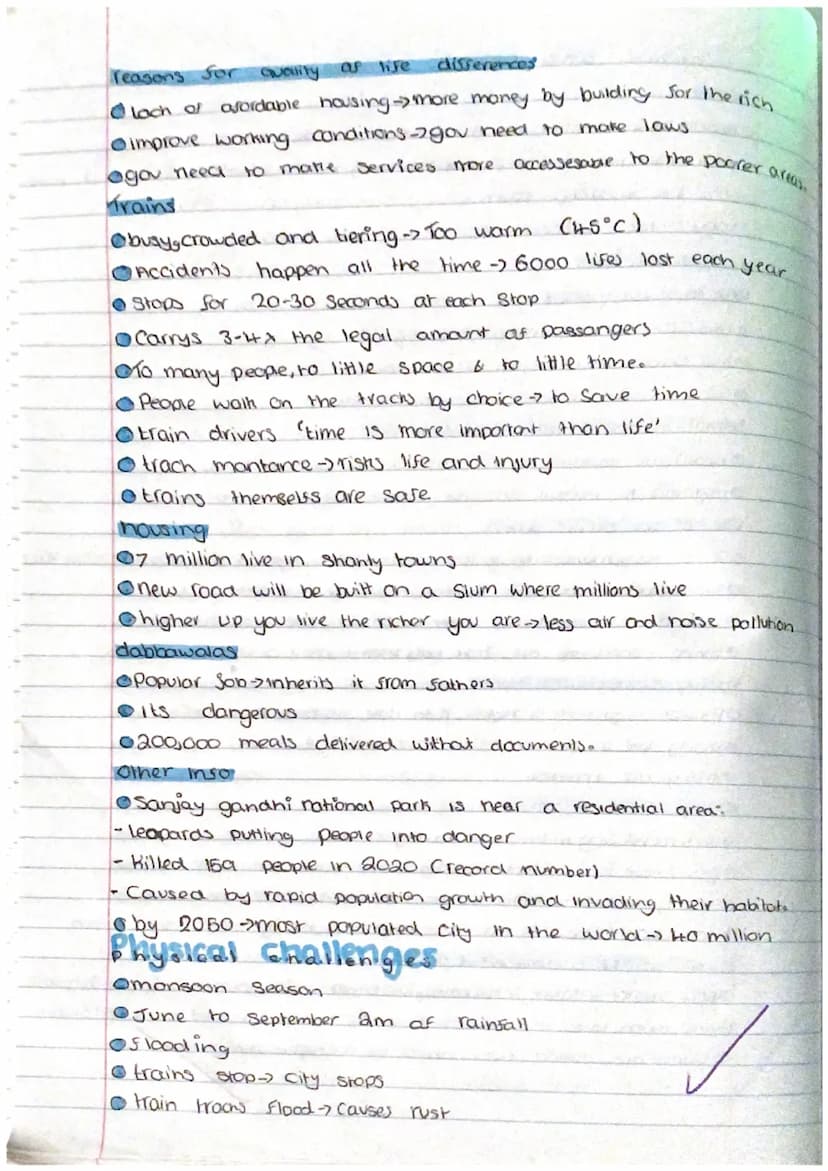 reasons for quality of life differences
lach of afordable housing→more money by building for the rich
improve working conditions→gov need to make laws
gov need to make services more accessesable to the poorer areas.
Trains
busy, crowded and tiering→Too warm (45°C)
Accidents happen all the time→6000 lifes lost each year
Stops for 20-30 seconds at each stop
Carrys 3-4x the legal amount of passangers
To many people, to little space & to little time.
People walk on the tracks by choice→to save time
train drivers 'time is more important than life'
trach mantance→risks life and injury
trains themselfs are safe
housing
7 million live in shanty towns
new road will be built on a slum where millions live
higher up you live the richer you are→less air and noise pollution
dabbawalas
Popular job→inherits it from fathers
its dangerous
200,000 meals delivered without documents.
Other info
Sanjay gandhi national park is near a residential area:
- leopards putting people into danger
- Killed 159 people in 2020 (record number)
- Caused by rapid population growth and invading their habitat.
by 2050→most populated city in the world→40 million
Physical challenges
monsoon season
June to September 2m of rainfall
flooding
trains stop→city stops
train tracks flood→causes rust